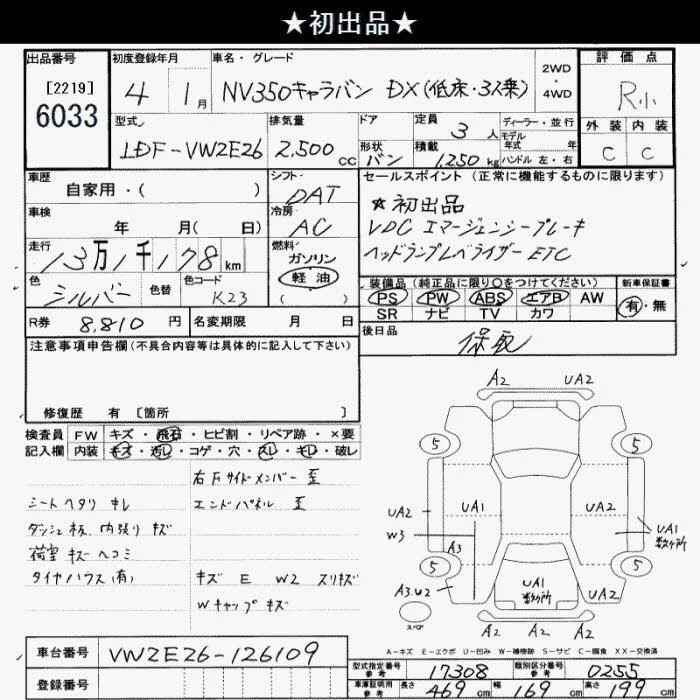 ★初出品★
出品番号 初度登録年月 車名・グレード 2WD・4WD 評価点
[2219] 6033 4 1月 NV350キャラバン DX(低床・3人乗) R小
型式 排気量 ドア 定員 3人 ディーラー・並行 外装 内装
LDF-VW2E26 2,500cc 形状 バン 積載 1,250kg モデル年式 年 ハンドル 左・右 C C
車歴 自家用・( ) シフト DAT セールスポイント(正常に機能するものに限ります)
車検 年 月( 日) 冷房 AC ★初出品
VDC エマージェンシーブレーキ
走行 13万1千178km 燃料 ガソリン 軽油 ( ) ヘッドランプレベライザー ETC
色 シルバー 色替 色コード K23 装備品(純正品に限り○をつけてください) 新車保証書
PS PW ABS エアB AW 有・無
R券 8,810円 名変期限 月 日 SR ナビ TV カワ
注意事項申告欄(不具合内容等は具体的に記入して下さい) 後日品 保取
修復歴 有 [箇所 ]
検査員 FW キズ・飛石・ヒビ割・リペア跡・×要
記入欄 内装 キズ・汚レ・コゲ・穴・スレ・キレ・破レ
右Fサイドメンバー 歪
シートヘタリ キレ エンドパネル 歪
ダッシュ板、内張り キズ
荷室 キズ ヘコミ
タイヤハウス(有) キズ E W2 スリキズ
Wキャップ キズ
A2 UA2
5 5
UA2 UA1 UA2 UA1 数ヶ所
W3 A3
5 5
A3.W2 UA1 数ヶ所 UA2
スペア A2 A2 A2
A-キズ E-エクボ U-凹み W-補修跡 S-サビ C-腐食 XX-交換済
車台番号 VW2E26-126109 型式指定番号 参考 17308 類別区分番号 参考 0255
登録番号 車庫証明用 参考 長さ 469cm 幅 169cm 高さ 199cm